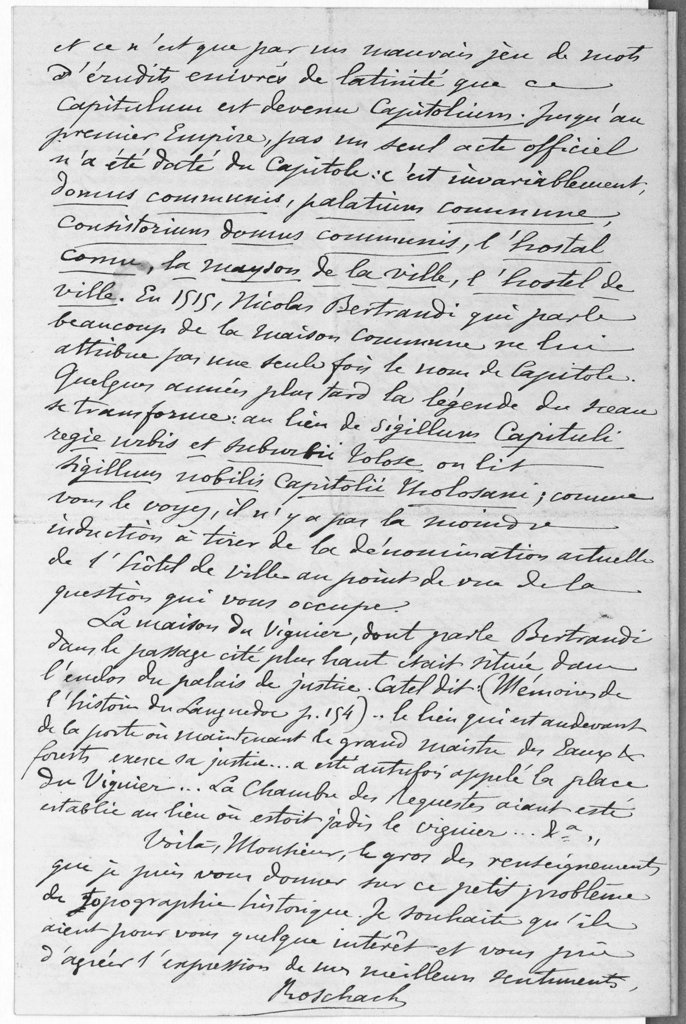 et ce n'est que par un mauvais jeu de mots
d'érudits enivrés de latinité que ce
Capitulum est devenu Capitolium. Jusqu'au
premier Empire, pas un seul acte officiel
n'a été daté du Capitole : c'est invariablement,
domus communis, palatium commune,
consistorium domus communis, l'hostal
comu, la mayson de la ville, l'hostel de
ville. En 1515, Nicolas Bertrandi qui parle
beaucoup de la maison commune ne lui
attribue pas une seule fois le nom de Capitole.
Quelques années plus tard la légende du sceau
se transforme : au lieu de Sigillum Capituli
regie urbis et suburbii Tolose on lit
Sigillum nobilis Capitolii Tholosani ; comme
vous le voyez, il n'y a pas la moindre
induction à tirer de la dénomination actuelle
de l'hôtel de ville au point de vue de la
question qui vous occupe.
La maison du Viguier, dont parle Bertrandi
dans le passage cité plus haut était située dans
l'enclos du palais de justice. Catel dit : (Mémoires de
l'histoire du Languedoc p. 154) .. le lieu qui est au devant
de la porte où maintenant le grand maistre des Eaux &
forests exerce sa justice... a esté autrefois appelé la place
du Viguier ... La Chambre des requestes aiant esté
establie au lieu où estoit jadis le viguier ... &a "
Voilà, Monsieur, le gros des renseignements
que je puis vous donner sur ce petit problème
de topographie historique. Je souhaite qu'ils
aient pour vous quelque intérêt et vous prie
d'agréer l'expression de mes meilleurs sentiments,
Roschach